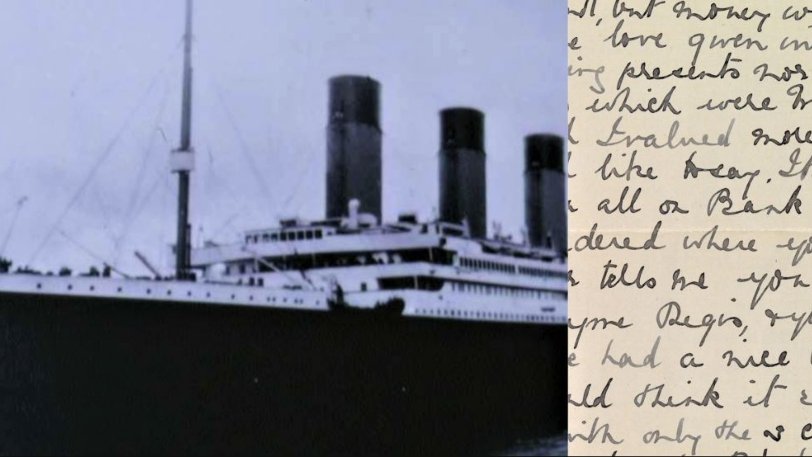 but money
love given in
presents nor
which were
I valued more
like to say. I
all on Bank
dered where yo
tells me you
yme Regis, &
had a nice
ld think it
with only the